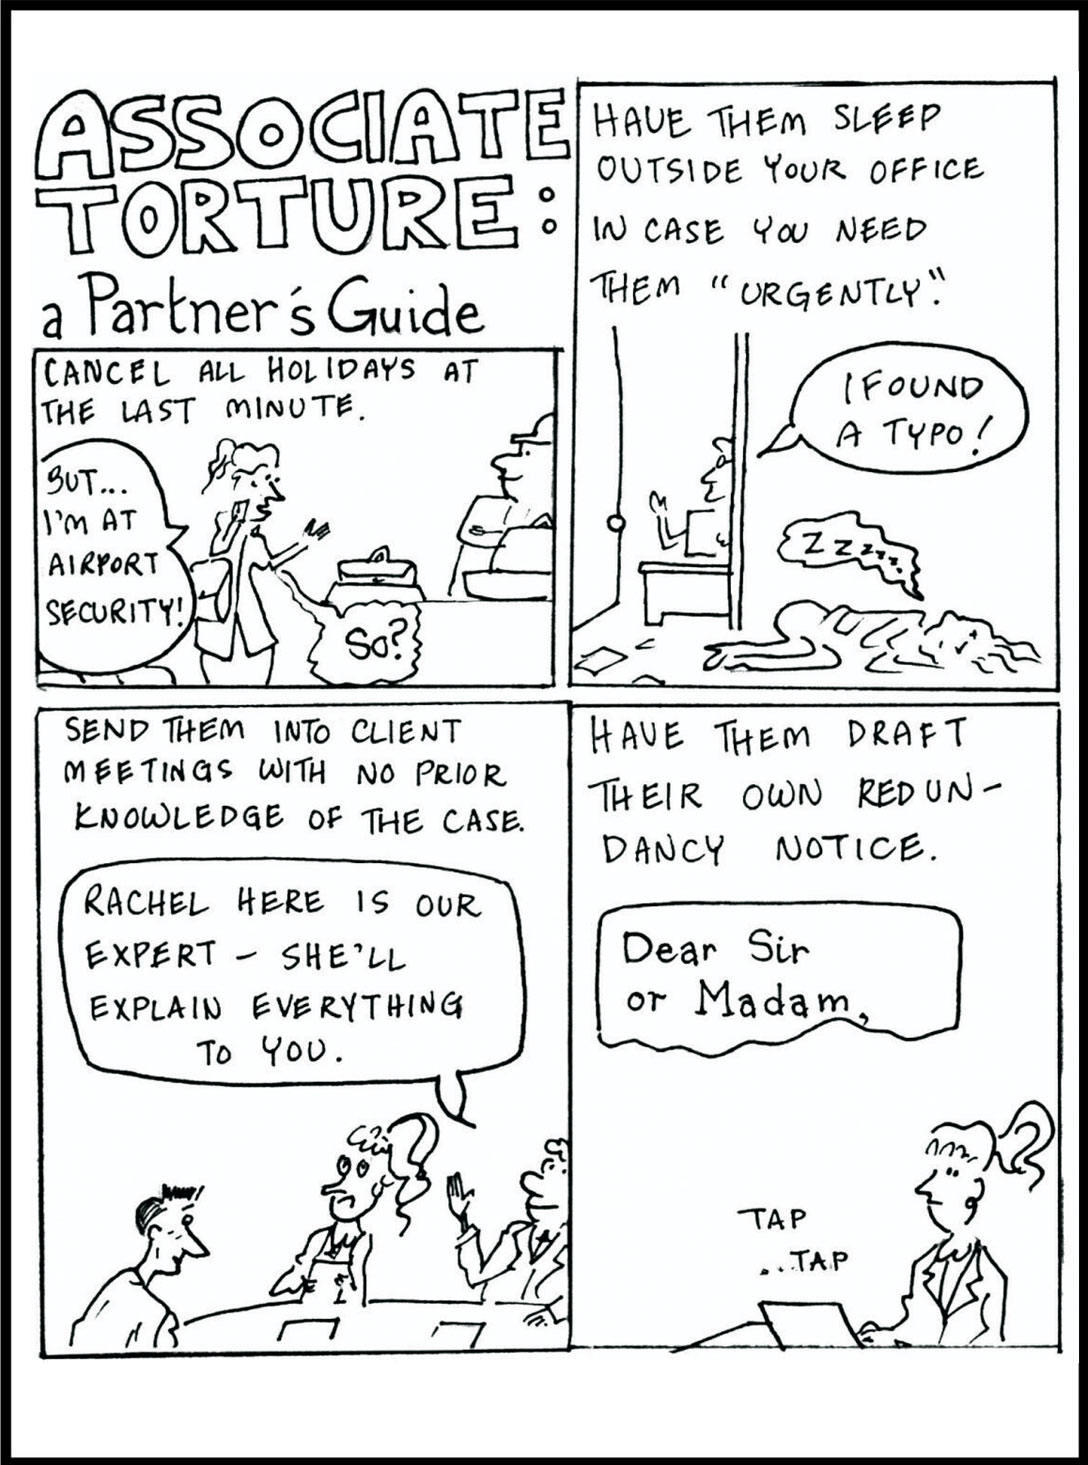 ASSOCIATE
TORTURE:
a Partner's Guide
CANCEL ALL HOLIDAYS AT
THE LAST MINUTE.
BUT...
I'M AT
AIRPORT
SECURITY!
So?
HAVE THEM SLEEP
OUTSIDE YOUR OFFICE
IN CASE YOU NEED
THEM "URGENTLY".
I FOUND
A TYPO!
ZZZZZZ
SEND THEM INTO CLIENT
MEETINGS WITH NO PRIOR
KNOWLEDGE OF THE CASE.
RACHEL HERE IS OUR
EXPERT - SHE'LL
EXPLAIN EVERYTHING
TO YOU.
HAVE THEM DRAFT
THEIR OWN REDUN-
DANCY NOTICE.
Dear Sir
or Madam,
TAP
...TAP